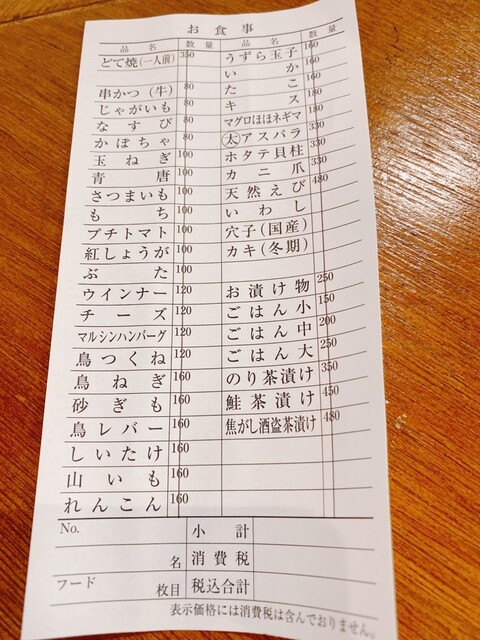 お食事
品名 数量 品名 数量
どて焼(一人前) 350 うずら玉子 160
いか 160
串かつ(牛) 80 たこ 160
じゃがいも 80 キス 180
なすび 80 マグロほほネギマ 180
かぼちゃ 80 太アスパラ 330
玉ねぎ 100 ホタテ貝柱 330
青唐 100 カニ爪 330
さつまいも 100 天然えび 480
もち 100 いわし
プチトマト 100 穴子(国産)
紅しょうが 100 カキ(冬期)
ぶた 100
ウインナー 120 お漬け物 250
チーズ 120 ごはん小 150
マルシンハンバーグ 120 ごはん中 200
鳥つくね 120 ごはん大 250
鳥ねぎ 160 のり茶漬け 350
砂ぎも 160 鮭茶漬け 450
鳥レバー 160 焦がし酒盗茶漬け 480
しいたけ 160
山いも 160
れんこん 160
No. 小計
名 消費税
フード 枚目 税込合計
表示価格には消費税は含んでおりません。